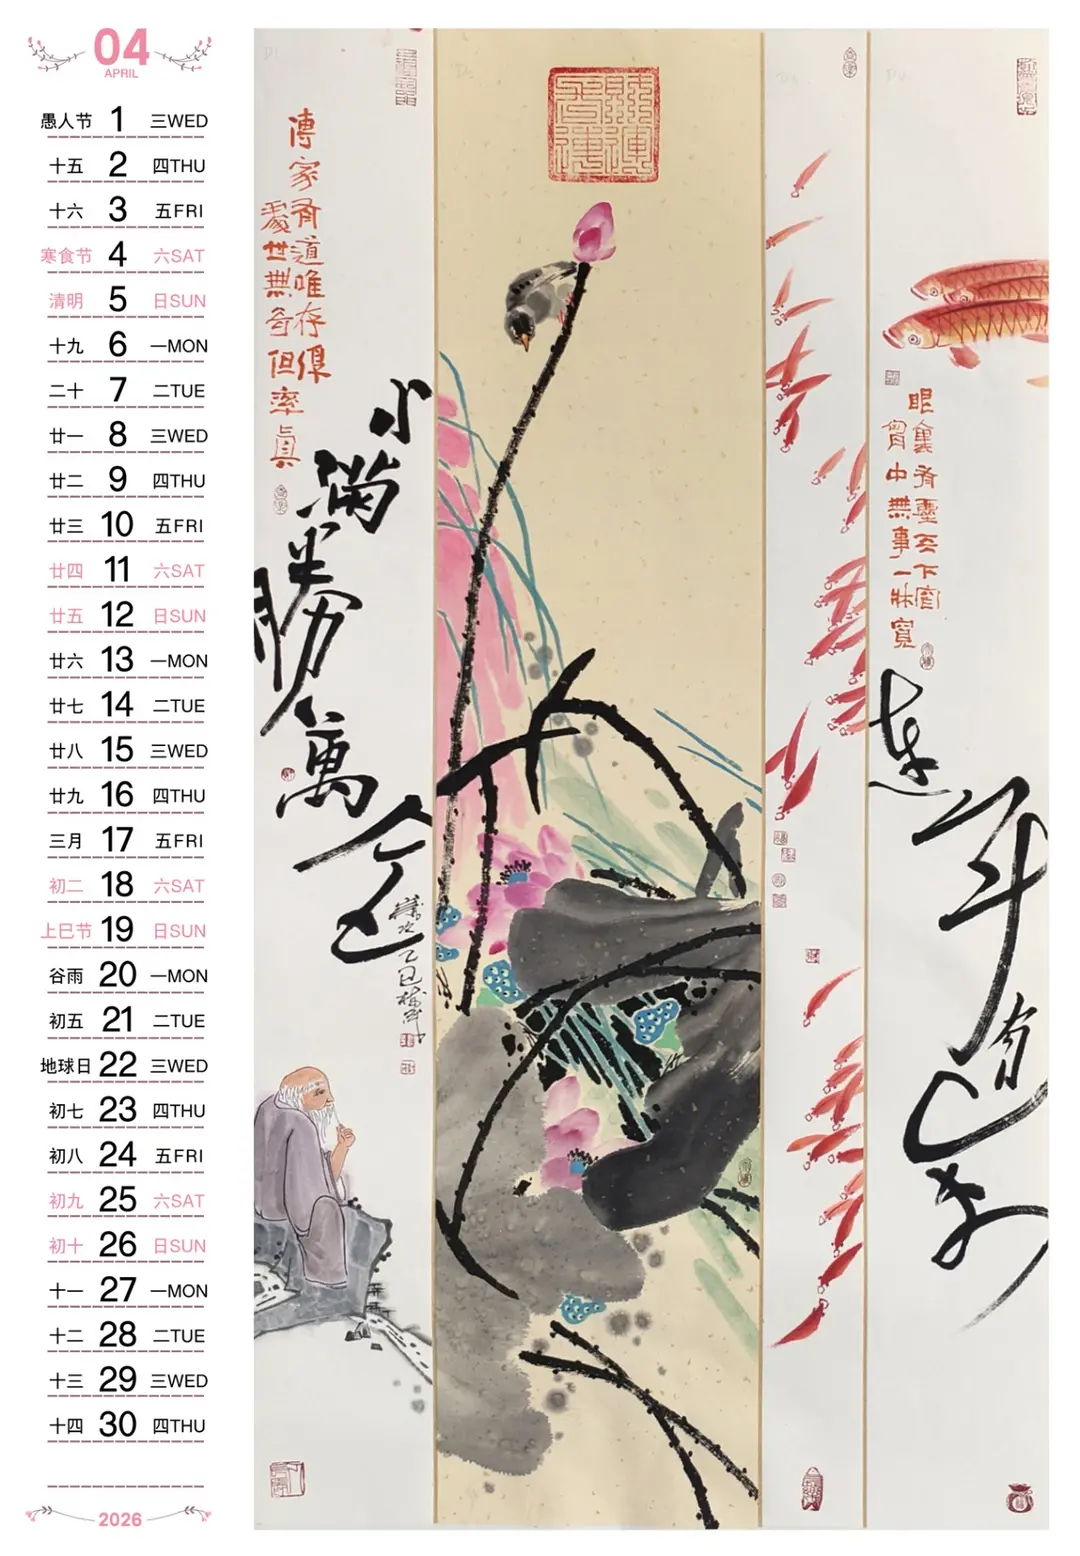 04
APRIL
愚人节 1 三WED
十五 2 四THU
十六 3 五FRI
寒食节 4 六SAT
清明 5 日SUN
十九 6 一MON
二十 7 二TUE
廿一 8 三WED
廿二 9 四THU
廿三 10 五FRI
廿四 11 六SAT
廿五 12 日SUN
廿六 13 一MON
廿七 14 二TUE
廿八 15 三WED
廿九 16 四THU
三月 17 五FRI
初二 18 六SAT
上巳节 19 日SUN
谷雨 20 一MON
初五 21 二TUE
地球日 22 三WED
初七 23 四THU
初八 24 五FRI
初九 25 六SAT
初十 26 日SUN
十一 27 一MON
十二 28 二TUE
十三 29 三WED
十四 30 四THU
2026
傳家有道唯存厚
處世無奇但率真
小滿勝萬全
歲次乙巳
眼裏有塵天下窄
胸中無事一牀寬
連年有